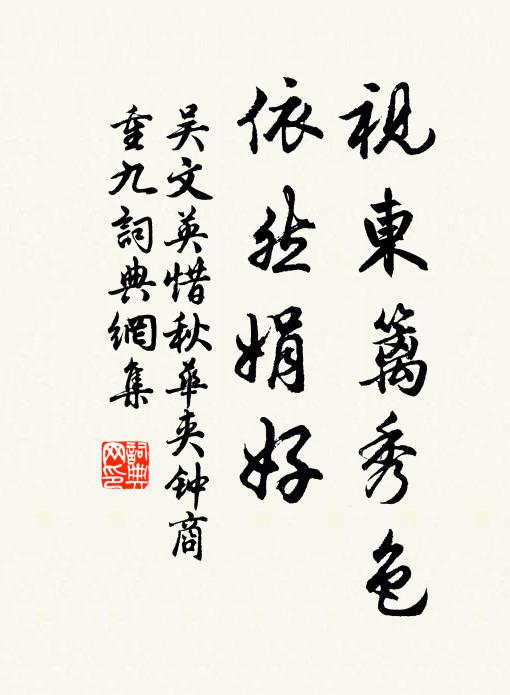 視東籬秀色
依然娟好
吴文英惜秋華夹钟商
重九詞典網集
詞典网印